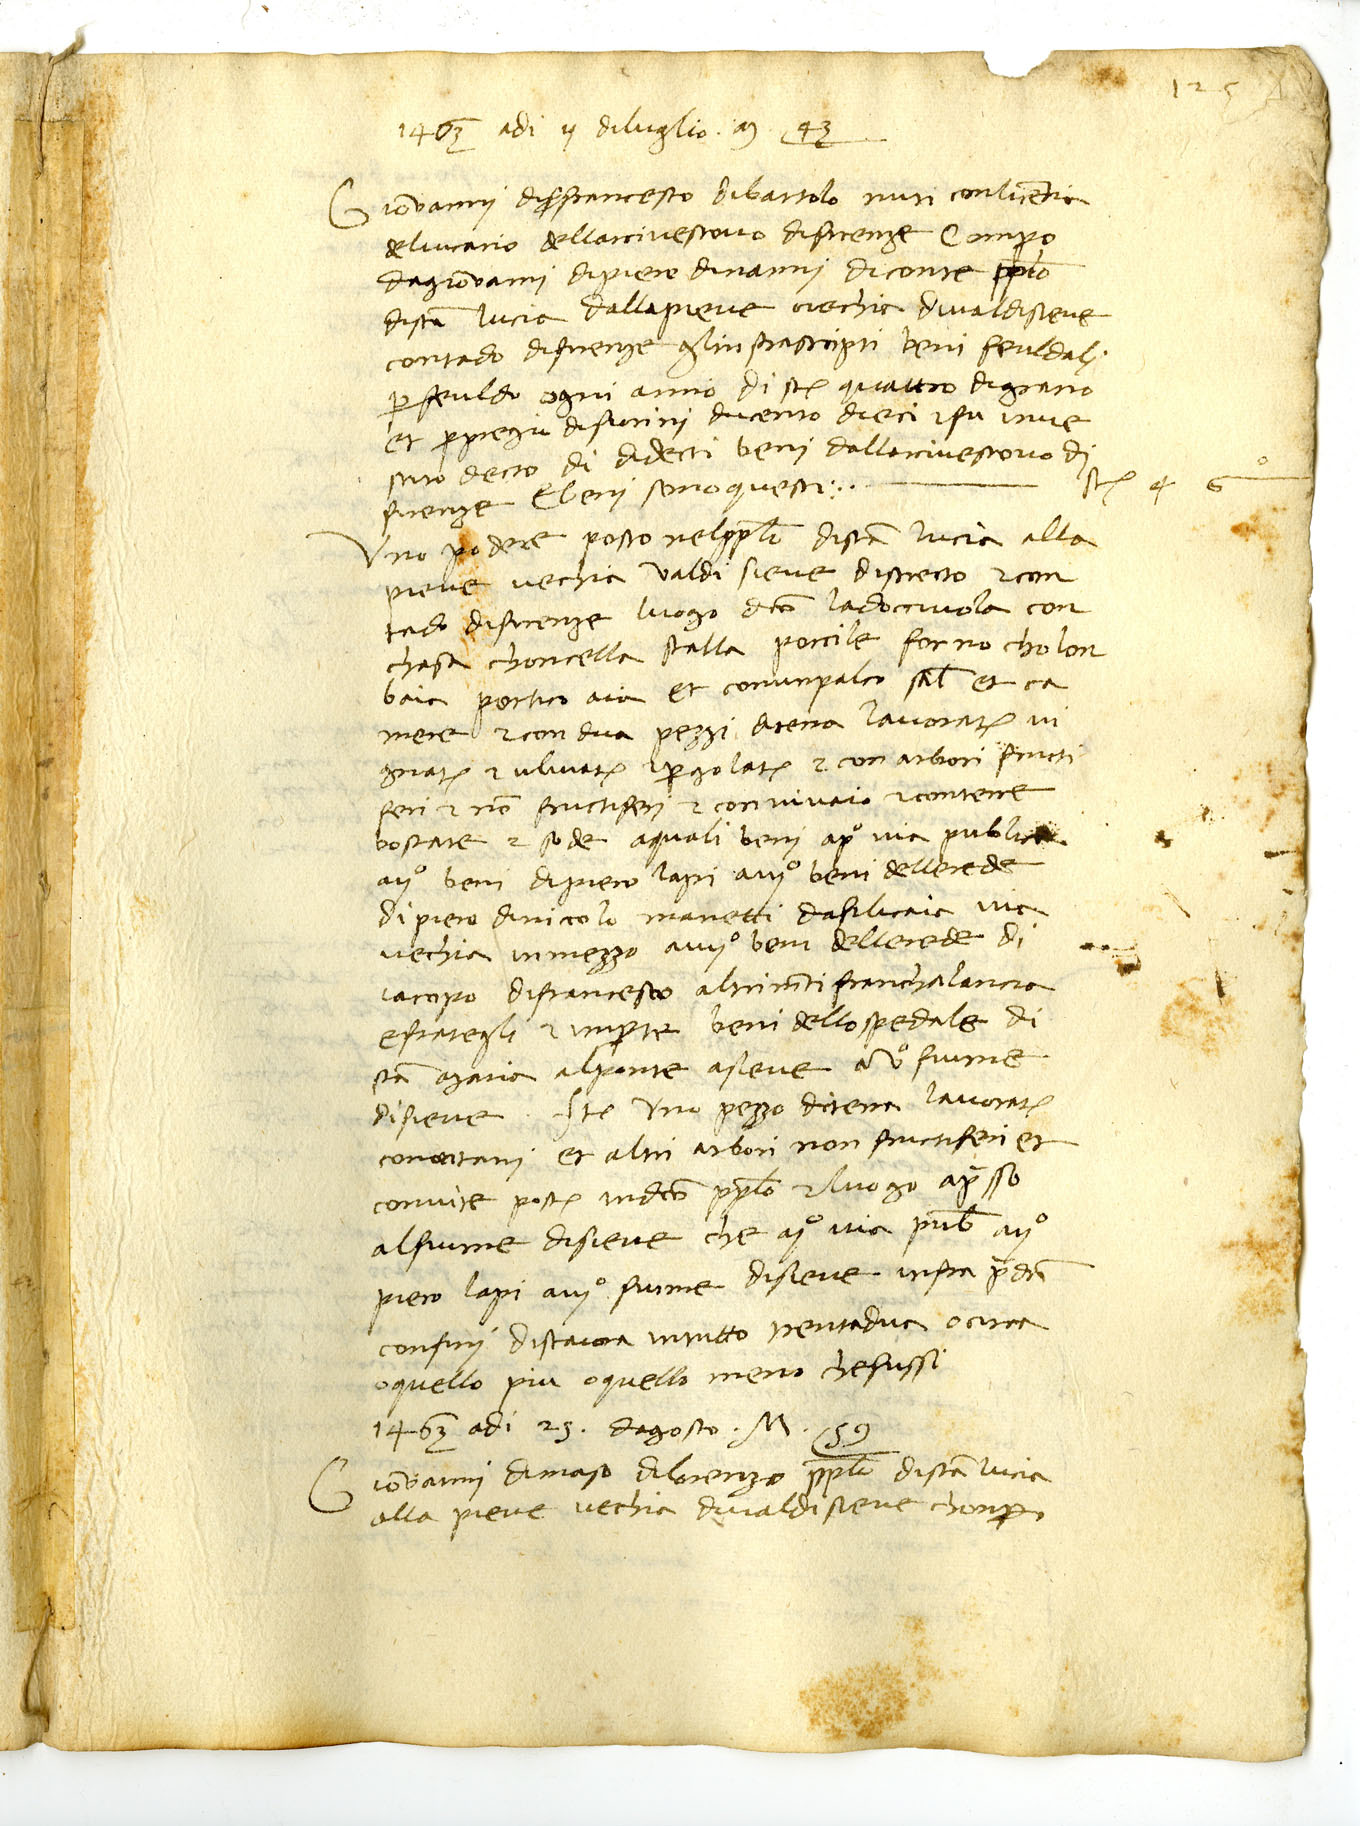 125
1463 adi ij diluglio. M 43
Giovannj disfrancescho dibartolo nuti conlicentia
delvicario dellarcivescovo difirenze Compro
dagiovannj dipiero dinannj diconte pplo
dista lucia dallapieve vechia divaldisieve
contado difirenze glinfrascripti beni feuldalj
p feuldo ognj anno di st quattro digrano
et p pregio difiorinj ducento dieci & fu inve
stito decto di didecti benj dallarcivescovo dj
firenze E benj sono questi: st 4 6 0
Uno podere posto nelpplo dista lucia alla
pieve vechia valdisieve distrecto & con
tado difirenze luogo dco ladoccivola con
chasa choncella stalla porcile forno cholon
baia portico aia et conunpalco sal et ca
mere & con dua pezzi diterra lavorat vi
gnat & ulivat & pergolat & con arbori fructi
feri & no fructiferj & convivaio & conterre
boscate & sode aquali benj a po via publica
a ijo beni dipiero lapi a iijo beni dellerede
dipiero dinicolo manetti dafilicaia via
vechia inmezzo a iiijo beni dellerede di
iacopo difrancesco altrimti franchalancia
efrategli & inpte beni dellospedale di
sta maria alponte asieve a vo fiume
disieve. Ite Uno pezzo diterra lavorat
conontanj et altri arbori non fructiferi et
convite post indco pplo & luogo apsso
alfiume disieve che a jo via pub a ijo
piero lapi a iijo fiume disieve infra pdci
confinj distaiora intutto trentadua ocirca
oquello piu oquello meno chefussi
1463 adi 25. dagosto. M. 59
Giovannj dimaso dilorenzo pplo dista lucia
alla pieve vechia divaldisieve chonpro